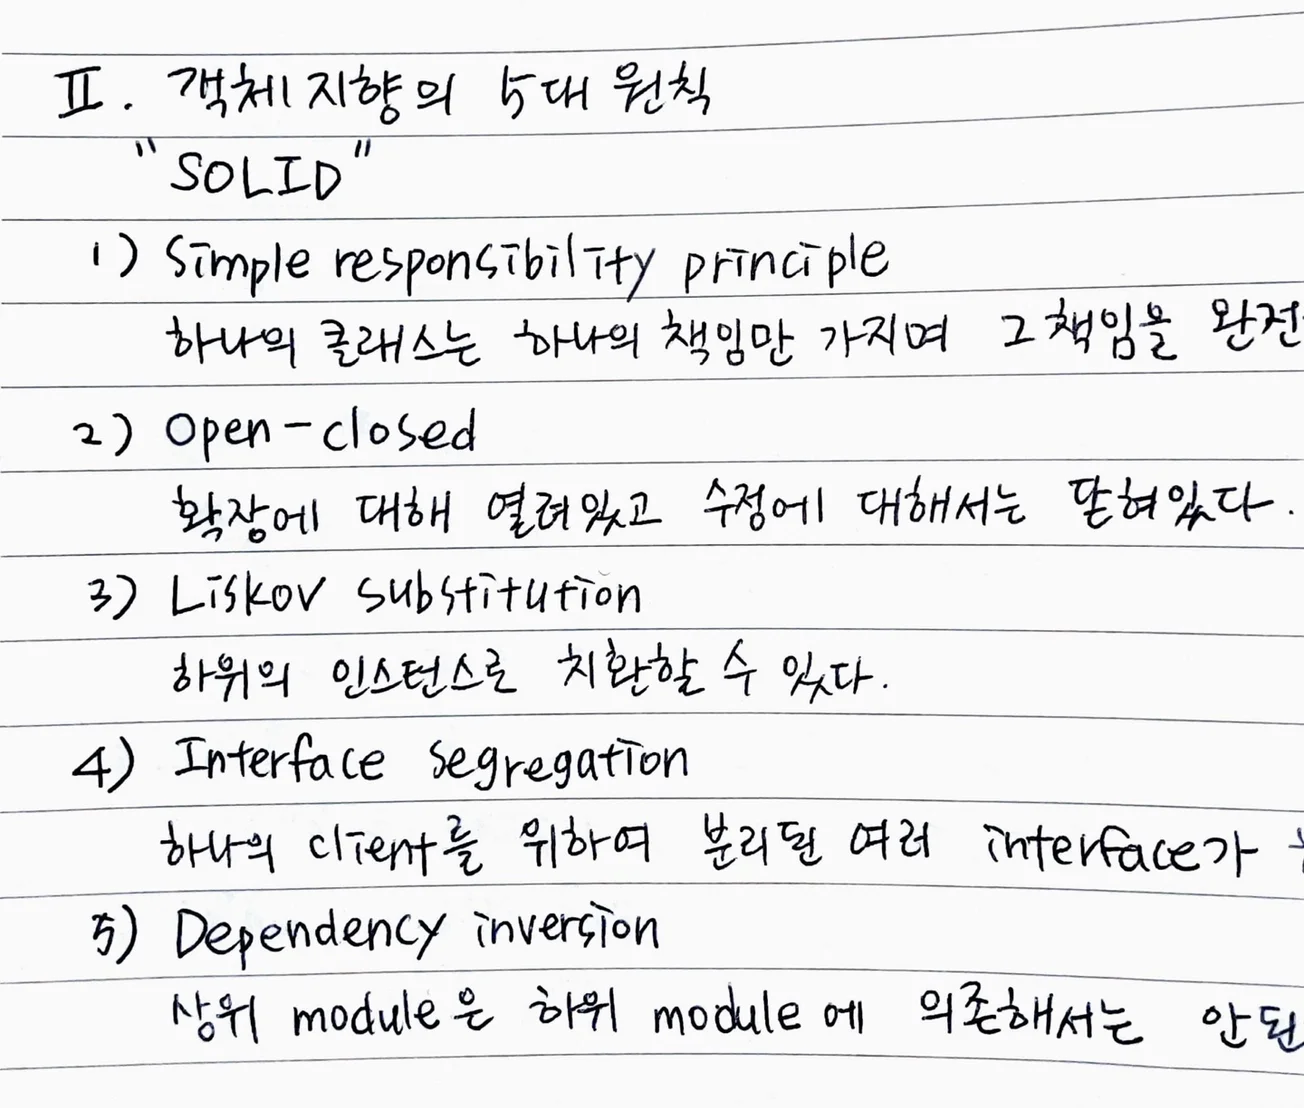 II. 객체지향의 5대 원칙
"SOLID"
1) Simple responsibility principle
하나의 클래스는 하나의 책임만 가지며 그 책임을 완전
2) Open-closed
확장에 대해 열려있고 수정에 대해서는 닫혀있다.
3) Liskov substitution
하위의 인스턴스로 치환할 수 있다.
4) Interface segregation
하나의 client를 위하여 분리된 여러 interface가
5) Dependency inversion
상위 module은 하위 module에 의존해서는 안된